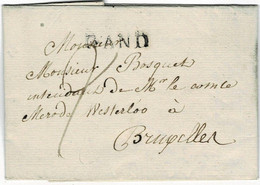 Monsieur
GAND
Monsieur Bosquet
intendent de Mr le comte
Merode Westerloo à
Bruxelles